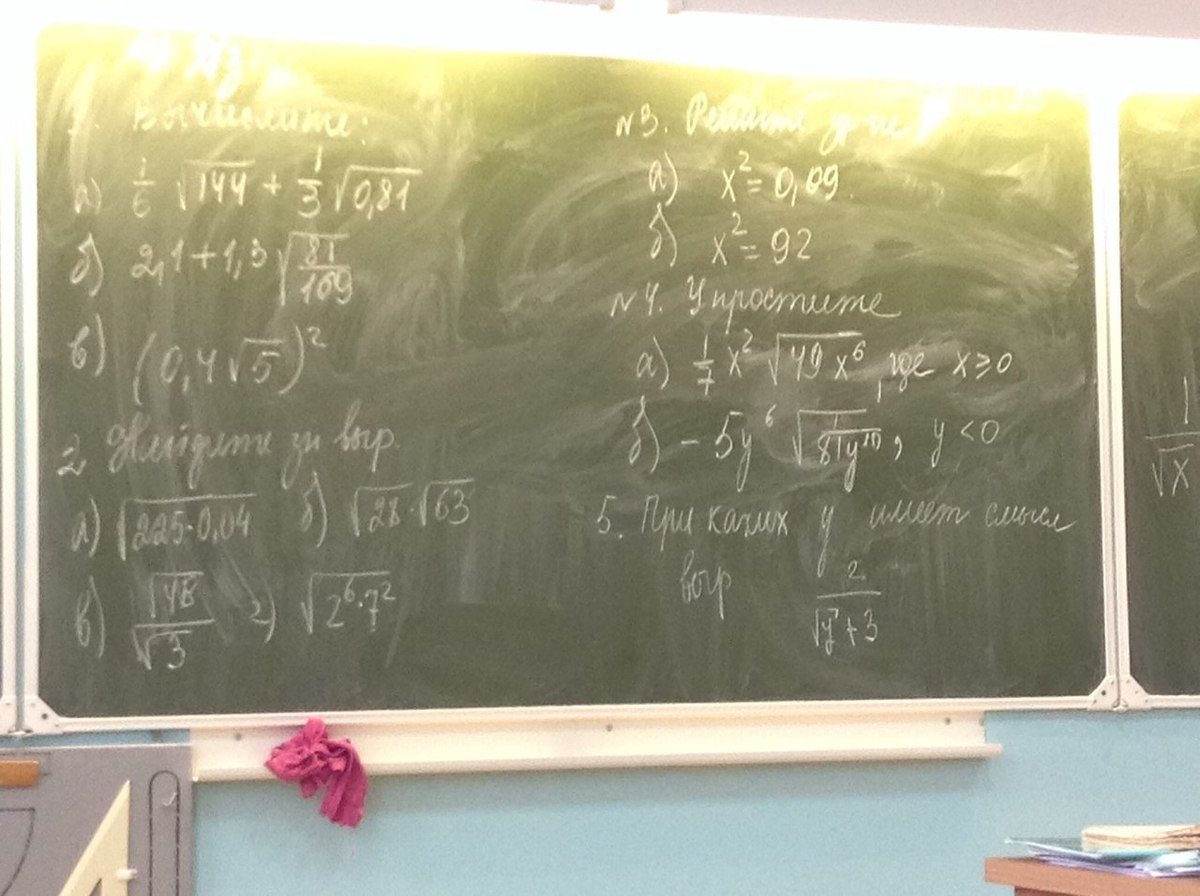 1. Вычислите:
а) 1/6 √144 + 1/3 √0,81
б) 2,1 + 1,3 √(81/169)
в) (0,4√5)²
2. Найдите зн выр.
а) √(225·0,04) б) √28·√63
в) √48/√3 г) √(2⁶·7²)
№3. Решите ур-ие
а) x² = 0,09
б) x² = 92
№4. Упростите
а) 1/7 x² √(49x⁶), где x ≥ 0
б) - 5y⁶ √(1/(81y¹⁰)), y < 0
5. При каких y имеет смысл
выр 2/(√y + 3)
1/√x